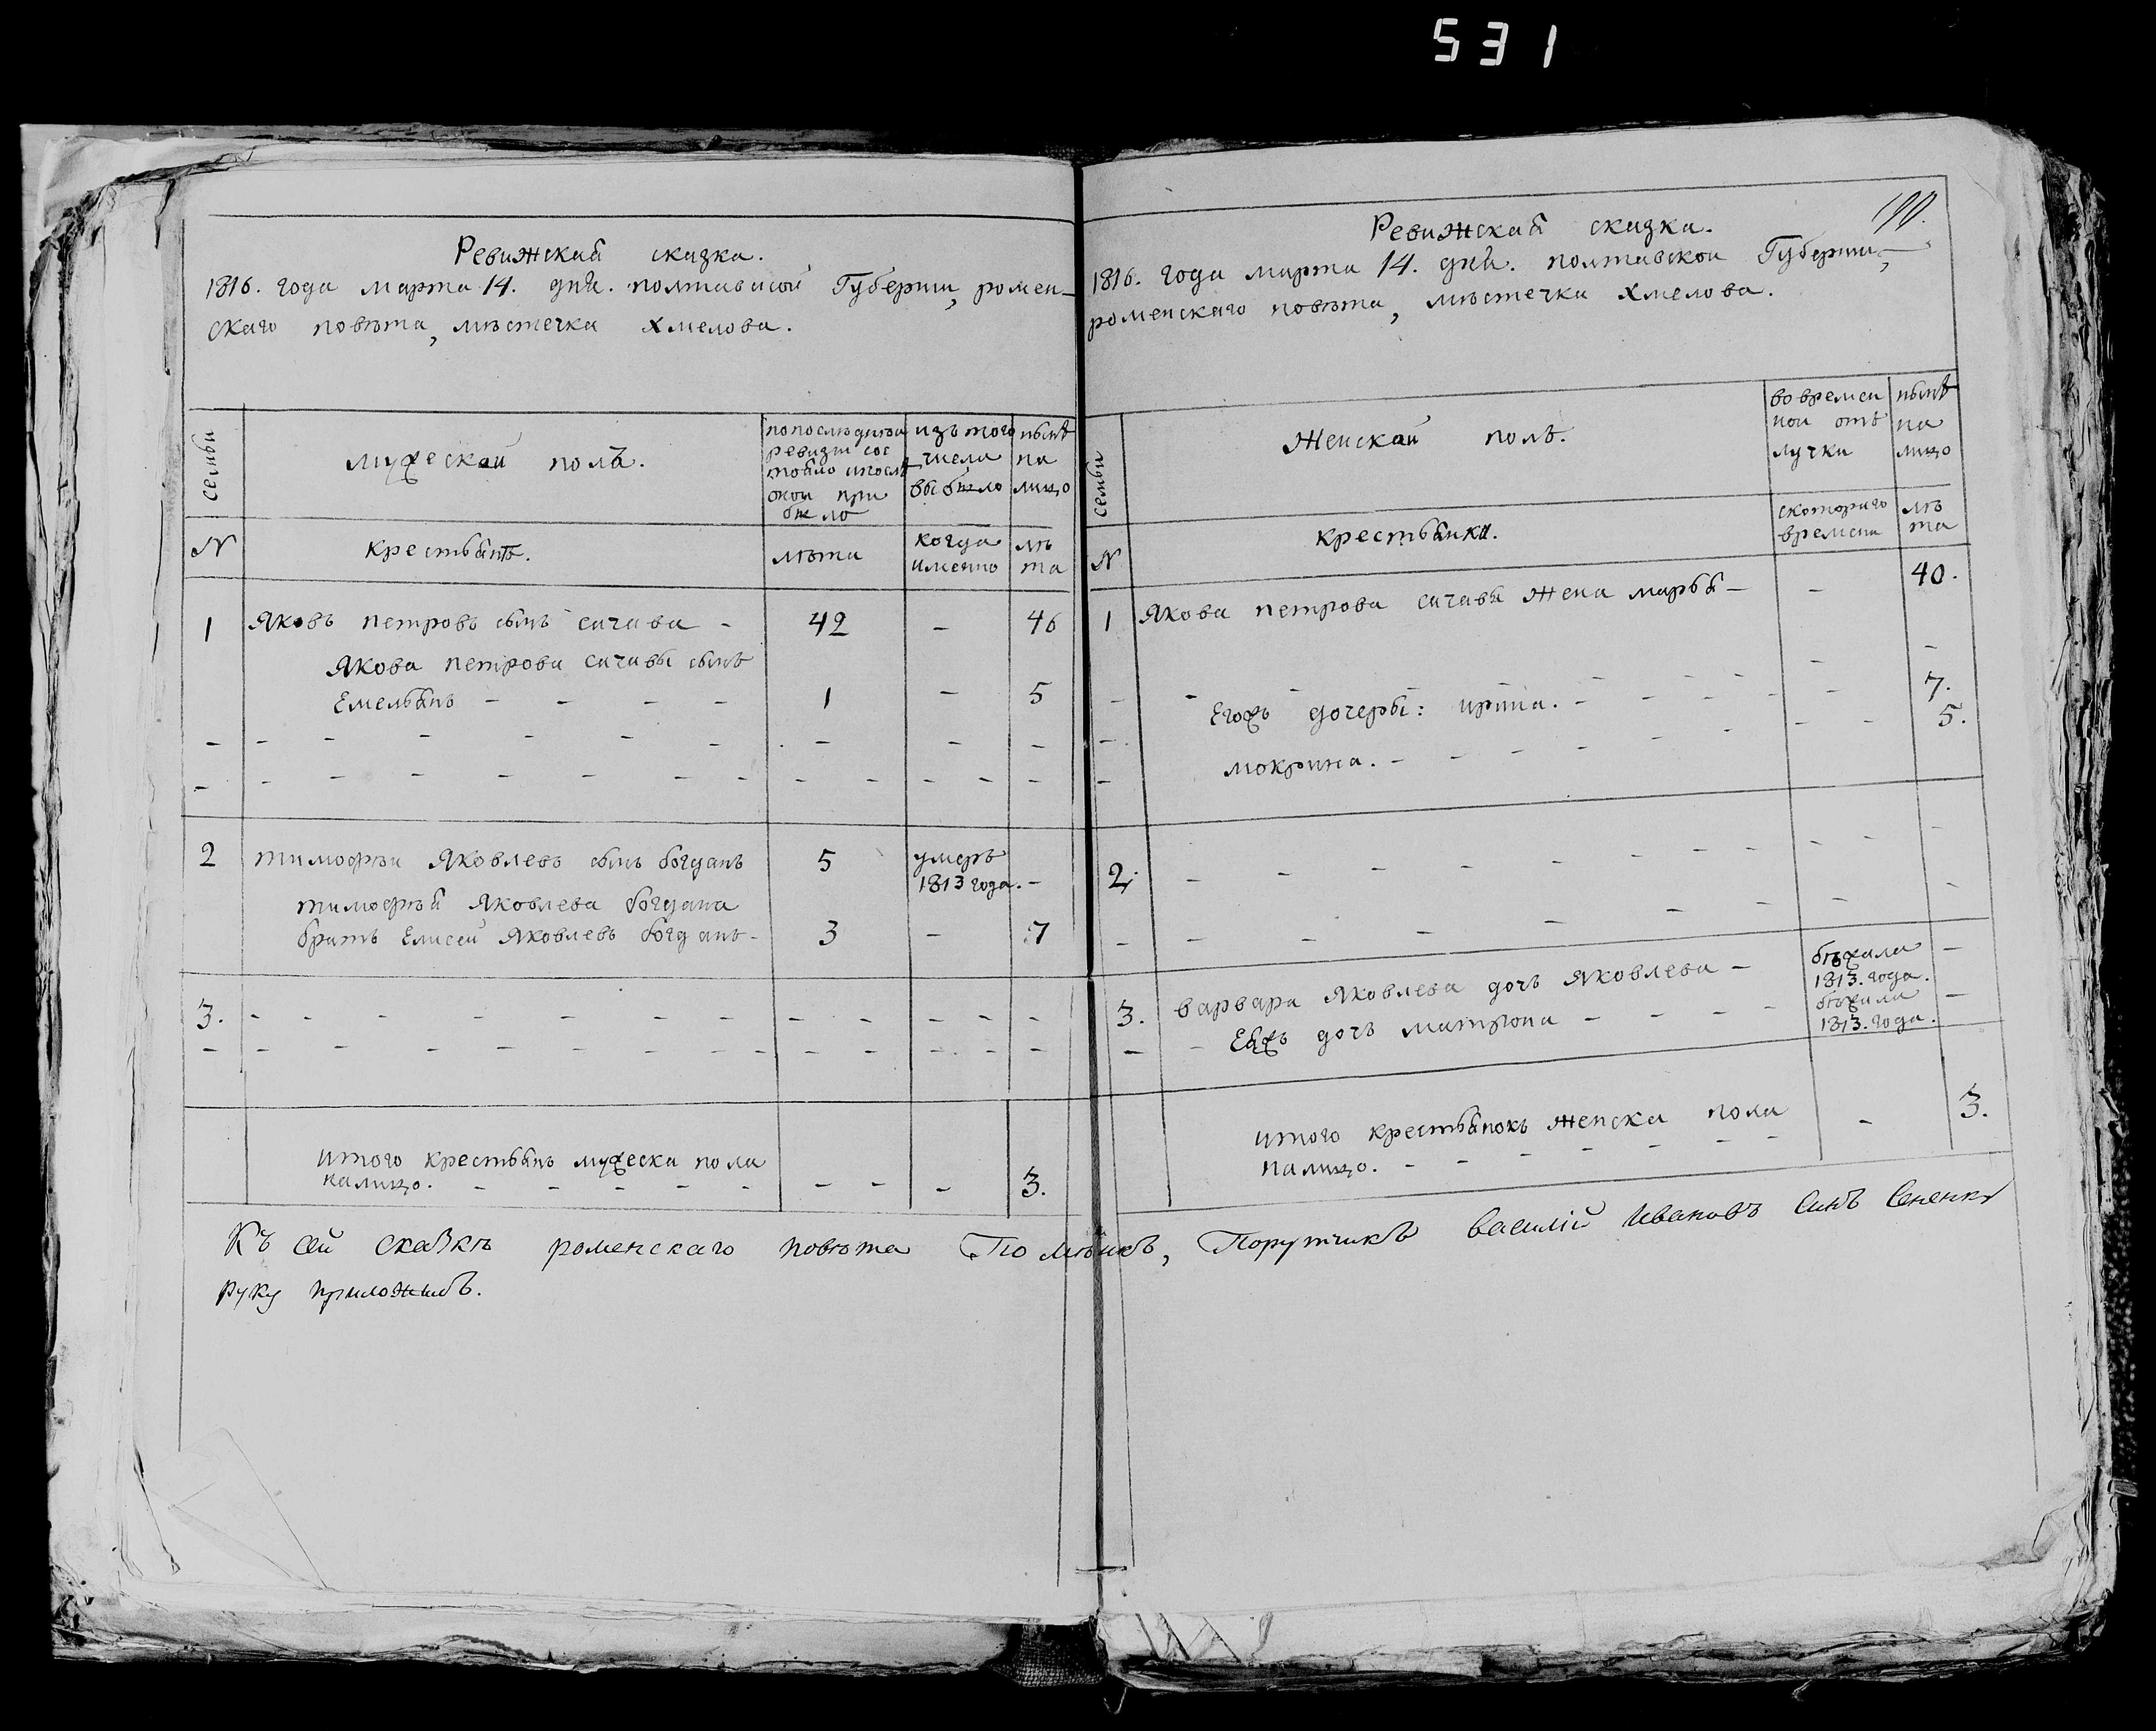 531
Ревижская сказка.
1816. года марта 14. дня. полтавской Губернии, ромен-
скаго повѣта, мѣстечка хмелова.
семьи
мужескай полъ.
попослѣдней
ревизіи сос
тояло ипослѣ
оной при
было
изъ того
числа
выбыло
нынѣ
на
лицо
N
крестьянъ.
лѣта
когда
именно
лѣ
та
1 Яковъ петровъ сынъ сичава - 42 - 46
Якова петрова сичавы сынъ
Емельянъ - - - - 1 - 5
2 тимофѣи Яковлевъ сынъ богданъ 5 умеръ
1813 года. -
тимофѣя Яковлева богдана
братъ Елисей Яковлевъ богданъ - 3 - 7
3. - - - - - - -
итого крестьянъ мужеска пола
налицо. - - - - - - - - 3.
Ревижская сказка.
1816. года марта 14. дня. полтавской Губернии,
роменскаго повѣта, мѣстечка хмелова.
семьи
Женскай полъ.
во времен
ной отъ
лучки
нынѣ
на
лицо
N
крестьянка.
скотораго
времени
лѣ
та
1 Якова петрова сичавы жена марья - - 40.
Егожъ дочеры: ирина. - - - - 7.
мокрина. - - - - - 5.
2. - - - - - - -
3. варвара Яковлева дочъ Яковлева - бѣжала
1813. года. -
Еяжъ дочъ матрона - - - - бѣжала
1813. года. -
итого крестьянокъ женска пола - 3.
налицо. - - - - - -
Къ сей сказкѣ роменскаго повѣта Помѣщикъ, Порутчикъ василій Ивановъ Синъ Сененко
руку приложилъ.